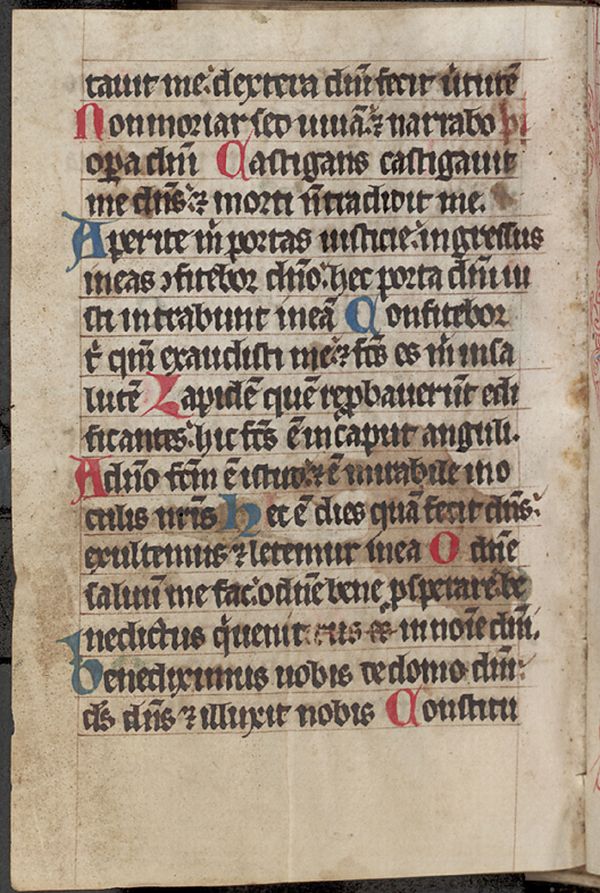 tauit me. dextera dñi fecit ũtutẽ
Non moriar sed uiuã. ⁊ narrabo
oꝑa dñi Castigans castigauit
me dñs. ⁊ morti ñ tradidit me.
Aperite m̃ portas iusticie. ingressus
in eas ↄfitebor dño. hec porta dñi iu
sti intrabunt in eã Confitebor
t̃ qm̃ exaudisti me. ⁊ fc̃s es m̃ in sa
lutẽ Lapidẽ quẽ rep̱bauerũt edi
ficantes. hic fc̃s ẽ in caput anguli.
A dño fc̃m ẽ istud. ⁊ ẽ mirabile in o
culis nr̃is Hec ẽ dies quã fecit dñs.
exultemus ⁊ letemur in ea O dñe
saluũ me fac. o dñe bene ꝓsperare. be
nedictus q̇ uenit in noĩe dñi.
Benediximus uobis de domo dñi.
ds̃ dñs ⁊ illuxit nobis Constitu